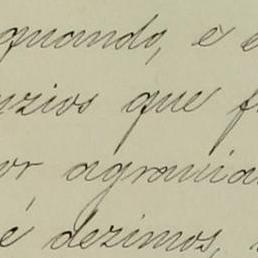 quando, e e
nzios que f
or, agracia
é dezimos,